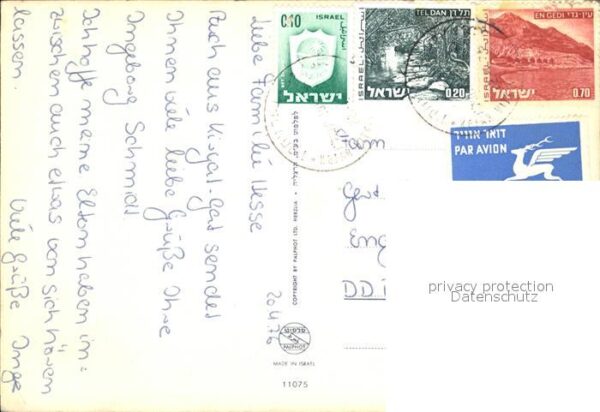 20.4.76
Liebe Familie Hesse
Auch aus Kiryat-Gat sendet
Ihnen viele liebe Grüße Ihre
Ingeborg Schmidt
Ich hoffe meine Eltern haben in-
zwischen auch etwas von sich hören
lassen. Viele Grüße Inge
0.10
ISRAEL
اسرائيل
ישראל
TEL DAN תל דן
ISRAEL
اسرائيل
ישראל 0.20
EN GEDI עין גדי
ISRAEL
اسرائيل
ישראל 0.70
דואר אויר
PAR AVION
Fam
DD
COPYRIGHT BY PALPHOT LTD. HERZLIA
פלפוט
PALPHOT
MADE IN ISRAEL
11075
privacy protection
Datenschutz